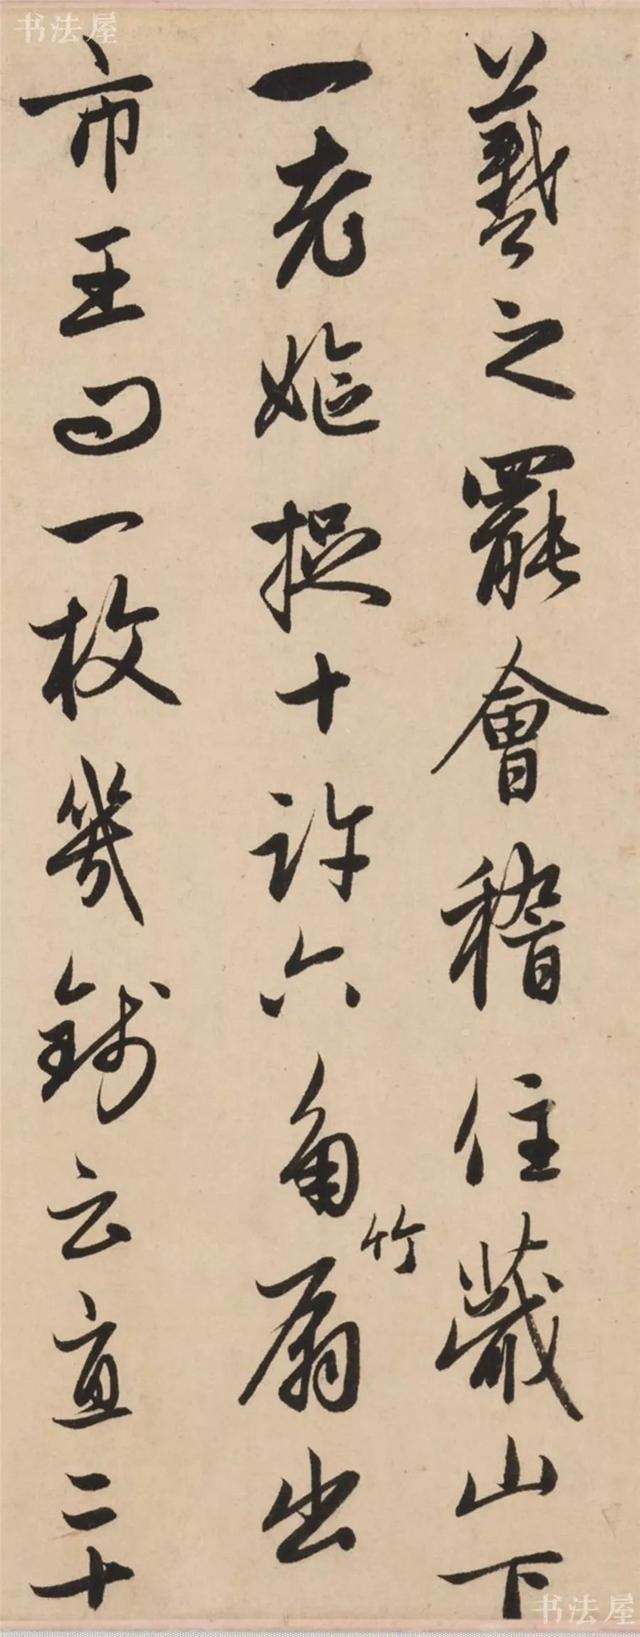 羲之罷會稽住蕺山下
一老嫗捉十許六角竹扇出
市王曰一枚幾錢云直二十
书法屋
书法屋